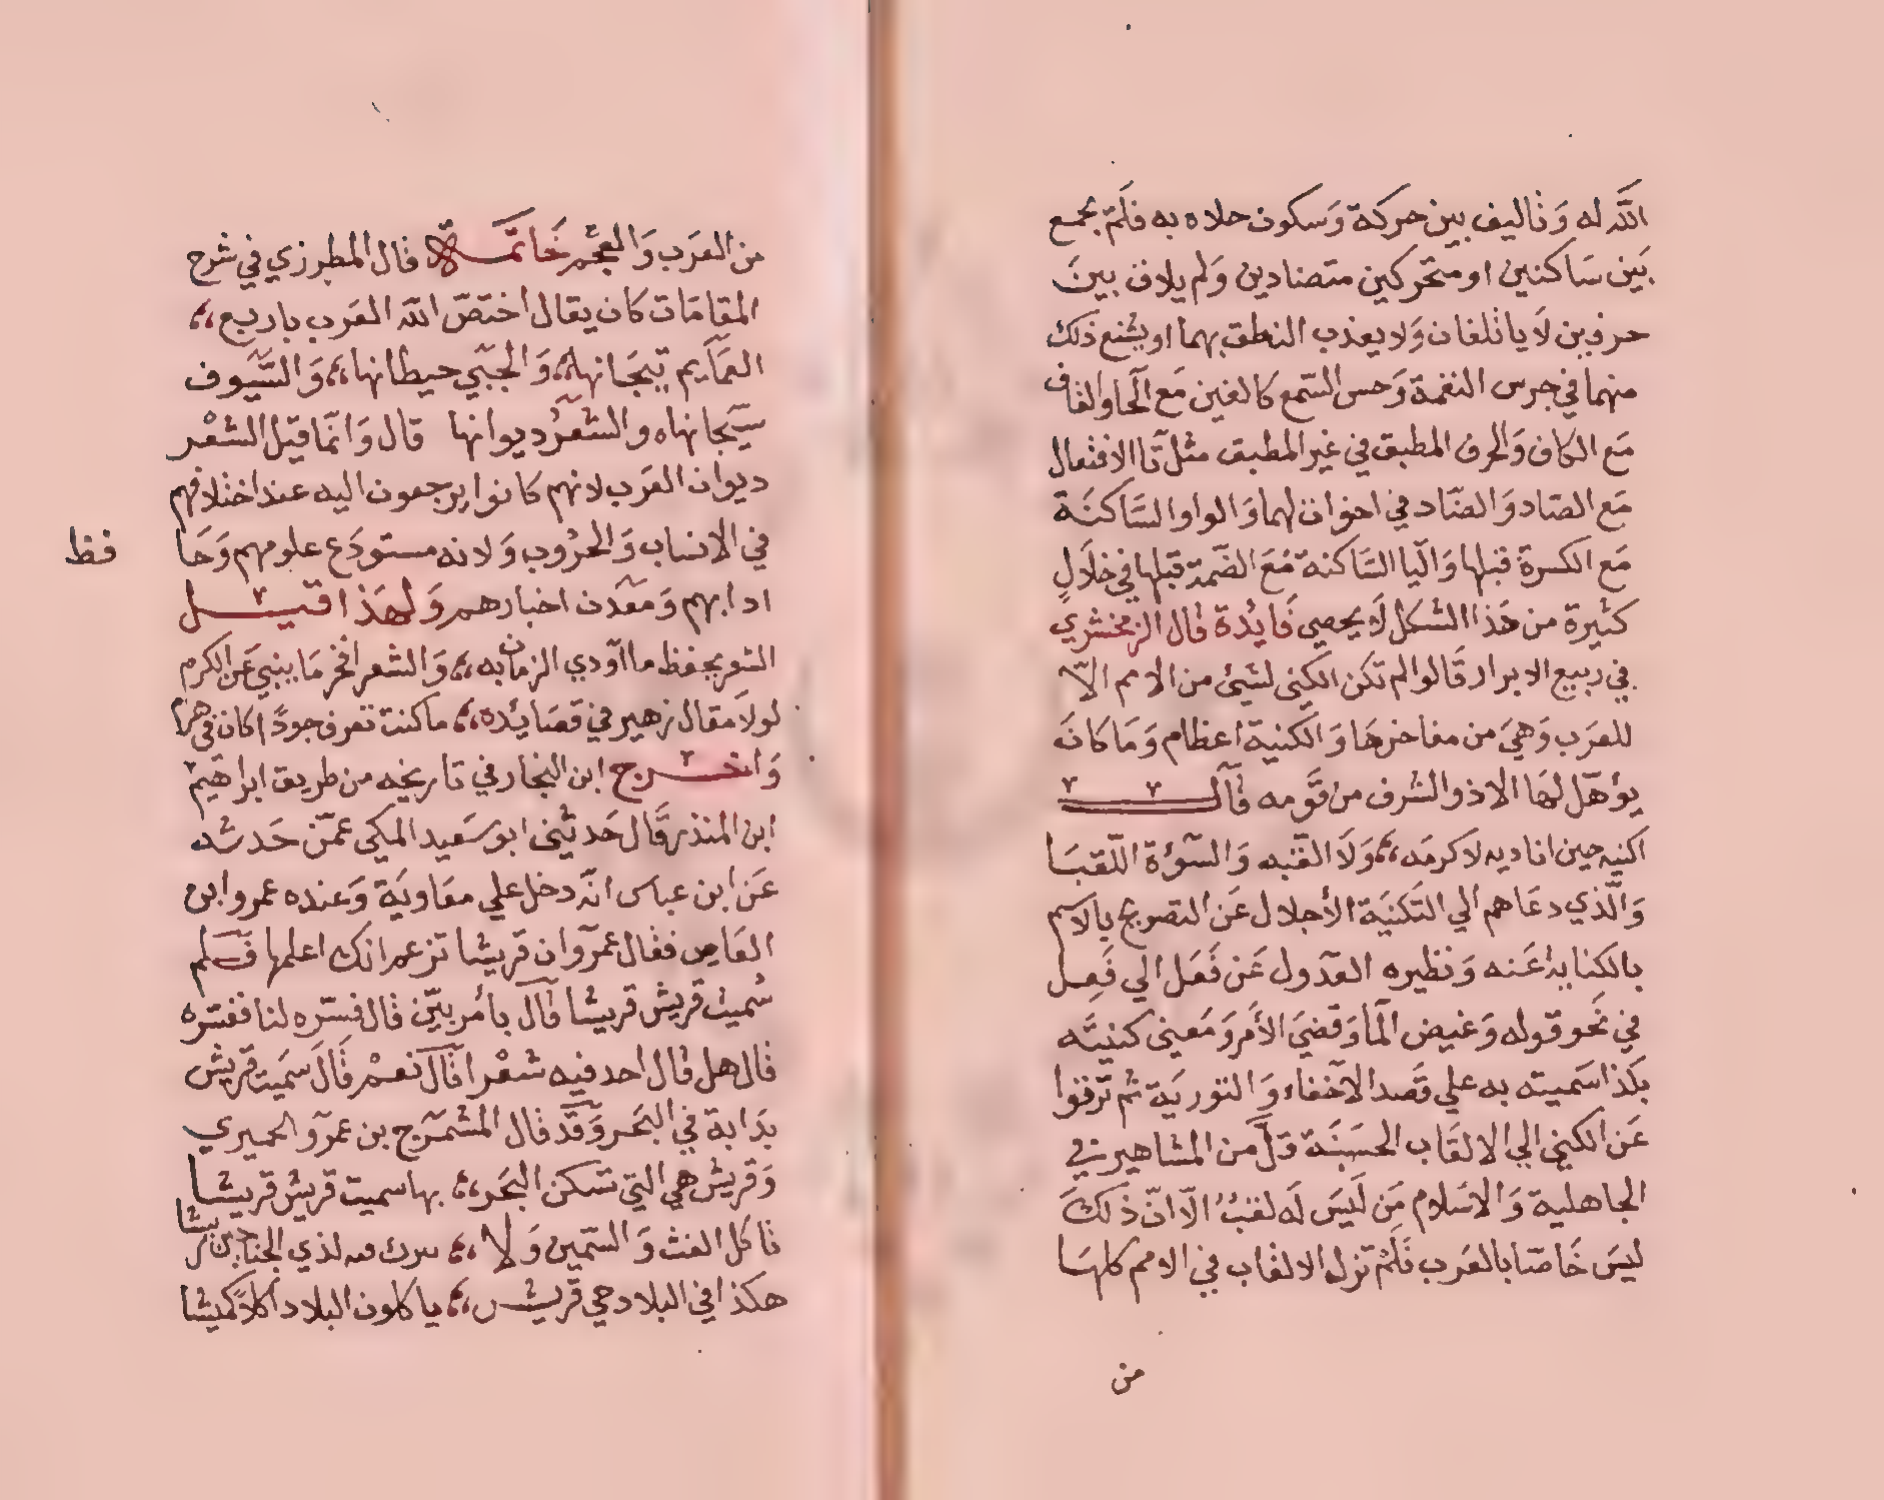 الله له وَتاليف بين حركة وَسكون حلاه به فلم يجمع
بَين سَاكنين او متحركين متضادين وَلم يلاق بين
حرفين لَا ياتلفان وَلا يعذب النطق بهما او يشنع ذلك
منهما في جرس النغمة وَحس السمع كالغين مَع الحا والقاف
مَع الكاف وَالحرف المطبق في غير المطبق مثل تا الافتعال
مَع الصاد وَالضاد في اخوات لهما وَالواو السَّاكنَة
مَع الكسرة قبلها وَاليا السَّاكنه مَعَ الضمة قبلها في خلَالٍ
كثيرة من هَذا الشكل لَا يحصي فَايدة قال الزمخشري
في ربيع الابرار قَالوا لم تكن الكنى لشئ من الامم الّا
للعرَب وَهيَ من مفاخرهَا وَالكنية اعظام وَمَا كانَ
يؤهّل لهَا الا ذو الشرف من قَومه قَال
اكنيه حين اناديه لاكرمَه ،، وَلَا القبه وَالسَّوْءَة اللّقبَا
وَالّذي دعَاهم الي التَكنيَة الأجلال عَن التصريح بالاسم
بالكناية عَنه وَنظيره العدول عَن فَعَل الي فُعِل
في نحَو قوله وَغيض المَا وَقضيَ الأَمر وَمَعنى كنيته
بكَذا سَميته به علي قَصد الاخفاء وَالتوريَة ثم ترقوا
عَن الكني الي الالقَاب الحسَنَة وَقَلّ من المشاهير في
الجاهلية وَالاسَلام مَن لَيسَ لَه لقبٌ الّا انّ ذلكَ
ليسَ خَاصّا بالعَرب فَلَم تزل الالقاب في الامم كلهَا
من
من العَرَب وَالعجَم خَاتمَة قال المطرزي في شرح
المقامَات كان يقال اختصّ الله العَرب باربع ،،
العمَايم تيجَانها ،، وَالحبي حيطانها ،، وَالسّيوف
سيجَانها ه والشعرُ ديوانها قال وَانّما قيل الشعْر
ديوان العَرب لانهم كانوا يرجعون اليه عند اختلافهم
في الانساب وَالحرُوب وَلانه مستودَع علومهم وَحَا
فظ
ادابهم وَمعَدن اخبارهم وَلهَذا قيل
الشعر يحفظ ما اودي الزمان به ،، وَالشعر افخر مَا ينبي عَن الكرم
لولَا مقال زهير في قصَايده ،، ما كنت تعرف جودًا كان في هرم
وَاخرج ابن النجار في تاريخه من طريق ابراهيم
ابن المنذر قَال حَدثني ابو سَعيد المكي عمّن حَدثه
عَن ابن عباس انّه دخل علي معَاويَة وَعنده عمرو ابن
العَاص فقال عمرو ان قريشا تزعم انك اعلمها فَلم
سُميت قريش قريشا قَال بأمر بيّن قال فسّره لنا ففسّره
قال هل قال احد فيه شعْرا قَال نعَم قَالَ سَميت قريش
بدَابة في البَحر وَقَد قال المشمَرج بن عمرو الحميري
وَقريش هي التي تسكن البَحَر ،، بها سميت قريش قريشا
تاكل الغث وَالسّمين وَلا ،، سرك فيه لذي الجناحين ريشا
هكذا في البلاد حي قريش ،، ياكلون البلاد اكلا كميشا